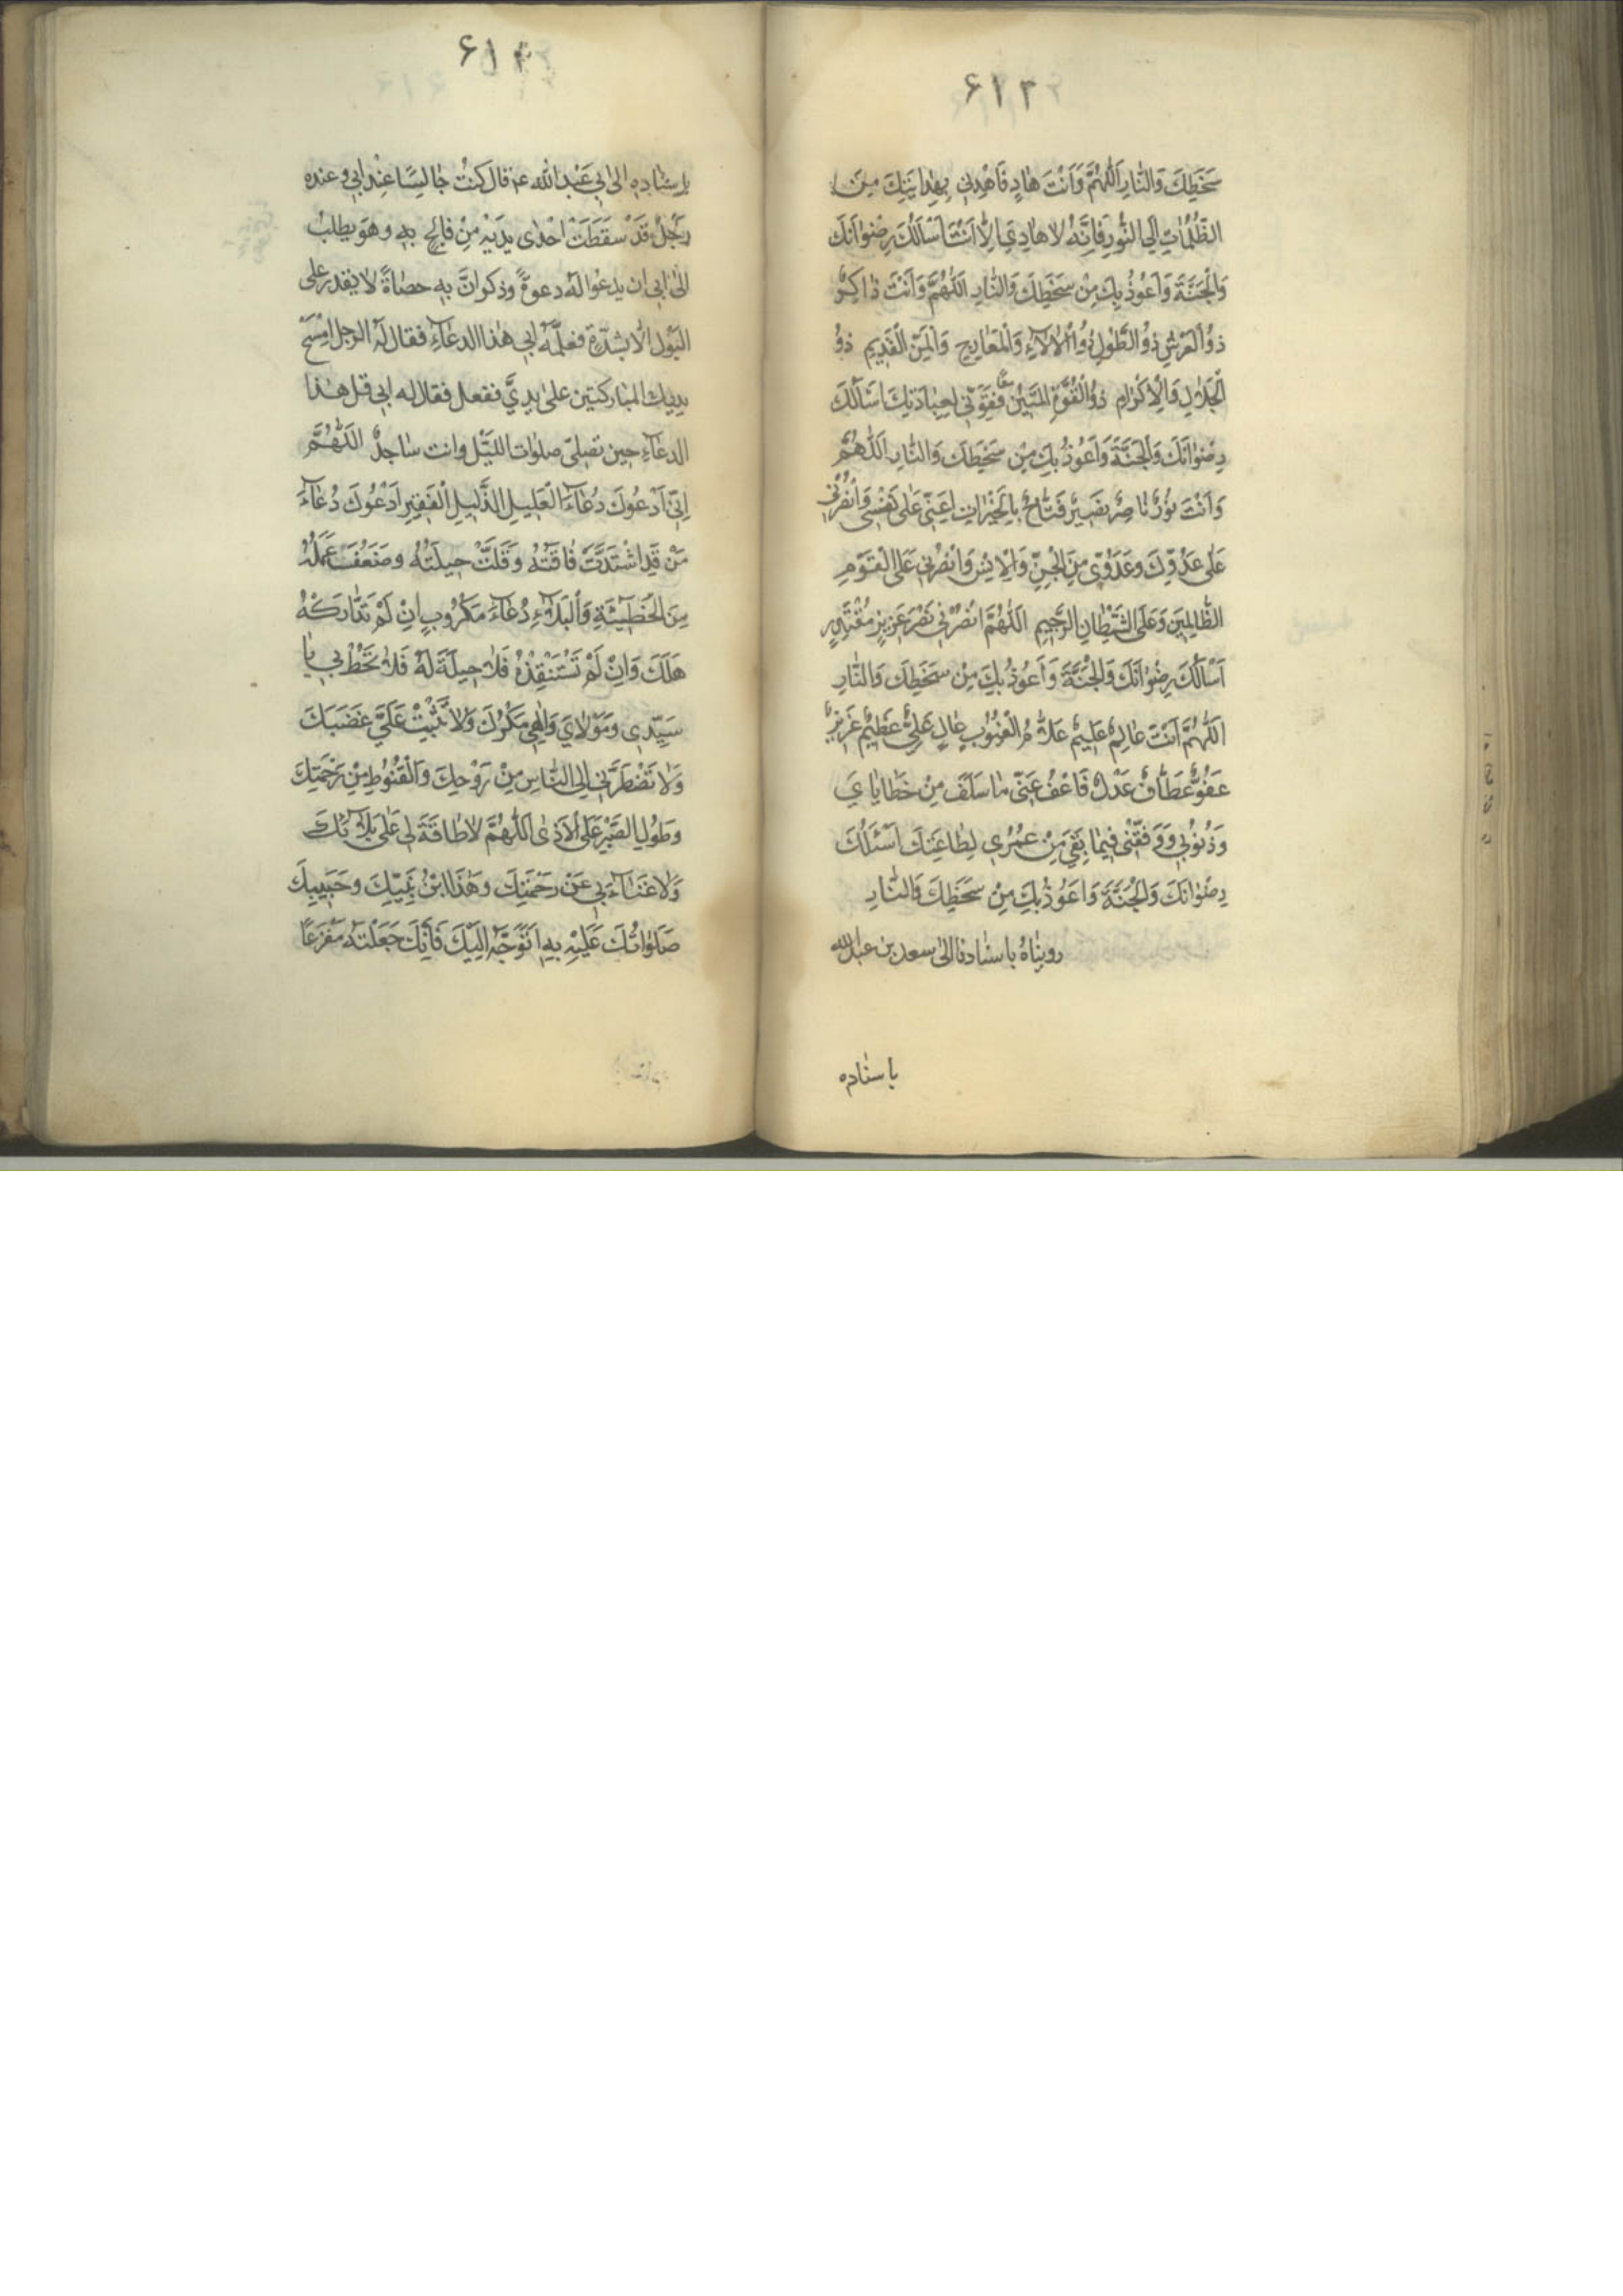 ۶۱۳
سَخَطِكَ وَالنَّارِ اَللّٰهُمَّ وَاَنْتَ هَادٍ فَاهْدِنِي بِهِدَايَتِكَ مِنَ
الظُّلُمَاتِ اِلَى النُّورِ فَاِنَّهُ لَا هَادِيَ اِلَّا اَنْتَ اَسْاَلُكَ رِضْوَانَكَ
وَالْجَنَّةَ وَاَعُوذُ بِكَ مِنْ سَخَطِكَ وَالنَّارِ اَللّٰهُمَّ وَاَنْتَ ذَاكِرٌ
ذُو الْعَرْشِ ذُو الطَّوْلِ ذُو الْاٰلَاءِ وَالْمَعَارِجِ وَالْمَنِّ الْقَدِيمِ ذُو
الْجَلَالِ وَالْاِكْرَامِ ذُو الْقُوَّةِ الْمَتِينُ فَقَوِّنِي لِعِبَادَتِكَ اَسْاَلُكَ
رِضْوَانَكَ وَالْجَنَّةَ وَاَعُوذُ بِكَ مِنْ سَخَطِكَ وَالنَّارِ اَللّٰهُمَّ
وَاَنْتَ نُورٌ نَاصِرٌ نَصِيرٌ فَتَّاحٌ بِالْخَيْرَاتِ اَعِنِّي عَلٰى نَفْسِي وَانْصُرْنِي
عَلٰى عَدُوِّكَ وَعَدُوِّي مِنَ الْجِنِّ وَالْاِنْسِ وَانْصُرْنِي عَلَى الْقَوْمِ
الظَّالِمِينَ وَعَلَى الشَّيْطَانِ الرَّجِيمِ اَللّٰهُمَّ انْصُرْنِي نَصْرَ عَزِيزٍ مُقْتَدِرٍ
اَسْاَلُكَ رِضْوَانَكَ وَالْجَنَّةَ وَاَعُوذُ بِكَ مِنْ سَخَطِكَ وَالنَّارِ
اَللّٰهُمَّ اَنْتَ عَالِمٌ عَلِيمٌ عَلَّامُ الْغُيُوبِ عَالٍ عَلِيٌّ عَظِيمٌ عَزِيزٌ
عَفُوٌّ عَطَّافٌ عَدْلٌ فَاعْفُ عَنِّي مَا سَلَفَ مِنْ خَطَايَايَ
وَذُنُوبِي وَوَفِّقْنِي فِيمَا بَقِيَ مِنْ عُمُرِي لِطَاعَتِكَ اَسْئَلُكَ
رِضْوَانَكَ وَالْجَنَّةَ وَاَعُوذُ بِكَ مِنْ سَخَطِكَ وَالنَّارِ
رويناه باسنادنا الى سعد بن عبدالله
باسناده
۶۱۴
بِاِسْنَادِهِ اِلٰى اَبِي عَبْدِ اللّٰهِ ع قَالَ كُنْتُ جَالِسًا عِنْدَ اَبِي وعنده
رَجُلٌ قَدْ سَقَطَتْ اِحْدٰى يَدَيْهِ مِنْ فَالِجٍ بِهِ وهُوَ يطلب
الى ابي ان يدعوا له دعوةً وذكر انَّ به حصاةً لا يقدر على
البَوْل الّا بشدّة فعلّمه ابي هذا الدعآء فقال له الرجل امْسَحْ
يديك المباركتين على يديَّ ففعل فقال له ابي قل هذا
الدعآء حين تصلي صلوات الليل وانت ساجدٌ اَللّٰهُمَّ
اِنِّي اَدْعُوكَ دُعَآءَ الْعَلِيلِ الذَّلِيلِ الْفَقِيرِ اَدْعُوكَ دُعَآءَ
مَنْ قَدِ اشْتَدَّتْ فَاقَتُهُ وَقَلَّتْ حِيلَتُهُ وضَعُفَ عَمَلُهُ
مِنَ الْخَطِيئَةِ وَالْبَلَاءِ دُعَآءَ مَكْرُوبٍ اِنْ لَمْ تَدَارَكْهُ
هَلَكَ وَاِنْ لَمْ تَسْتَنْقِذْهُ فَلَا حِيلَةَ لَهُ فَلَا تُحِطْ بِي يَا
سَيِّدِي وَمَوْلَايَ وَاِلٰهِي مَكْرُكَ وَلَا تُثْبِتْ عَلَيَّ غَضَبَكَ
وَلَا تَضْطَرَّنِي اِلَى النَّاسِ مِنْ رَوْحِكَ وَالْقُنُوطِ مِنْ رَحْمَتِكَ
وَطُولِ الصَّبْرِ عَلَى الْاَذٰى اَللّٰهُمَّ لَا طَاقَةَ لِي عَلٰى بَلَائِكَ
وَلَا غَنَآءَ بِي عَنْ رَحْمَتِكَ وهٰذَا ابْنُ نَبِيِّكَ وحَبِيبِكَ
صَلَوَاتُكَ عَلَيْهِ بِهِ اَتَوَجَّهُ اِلَيْكَ فَاِنَّكَ جَعَلْتَهُ مَفْزَعًا